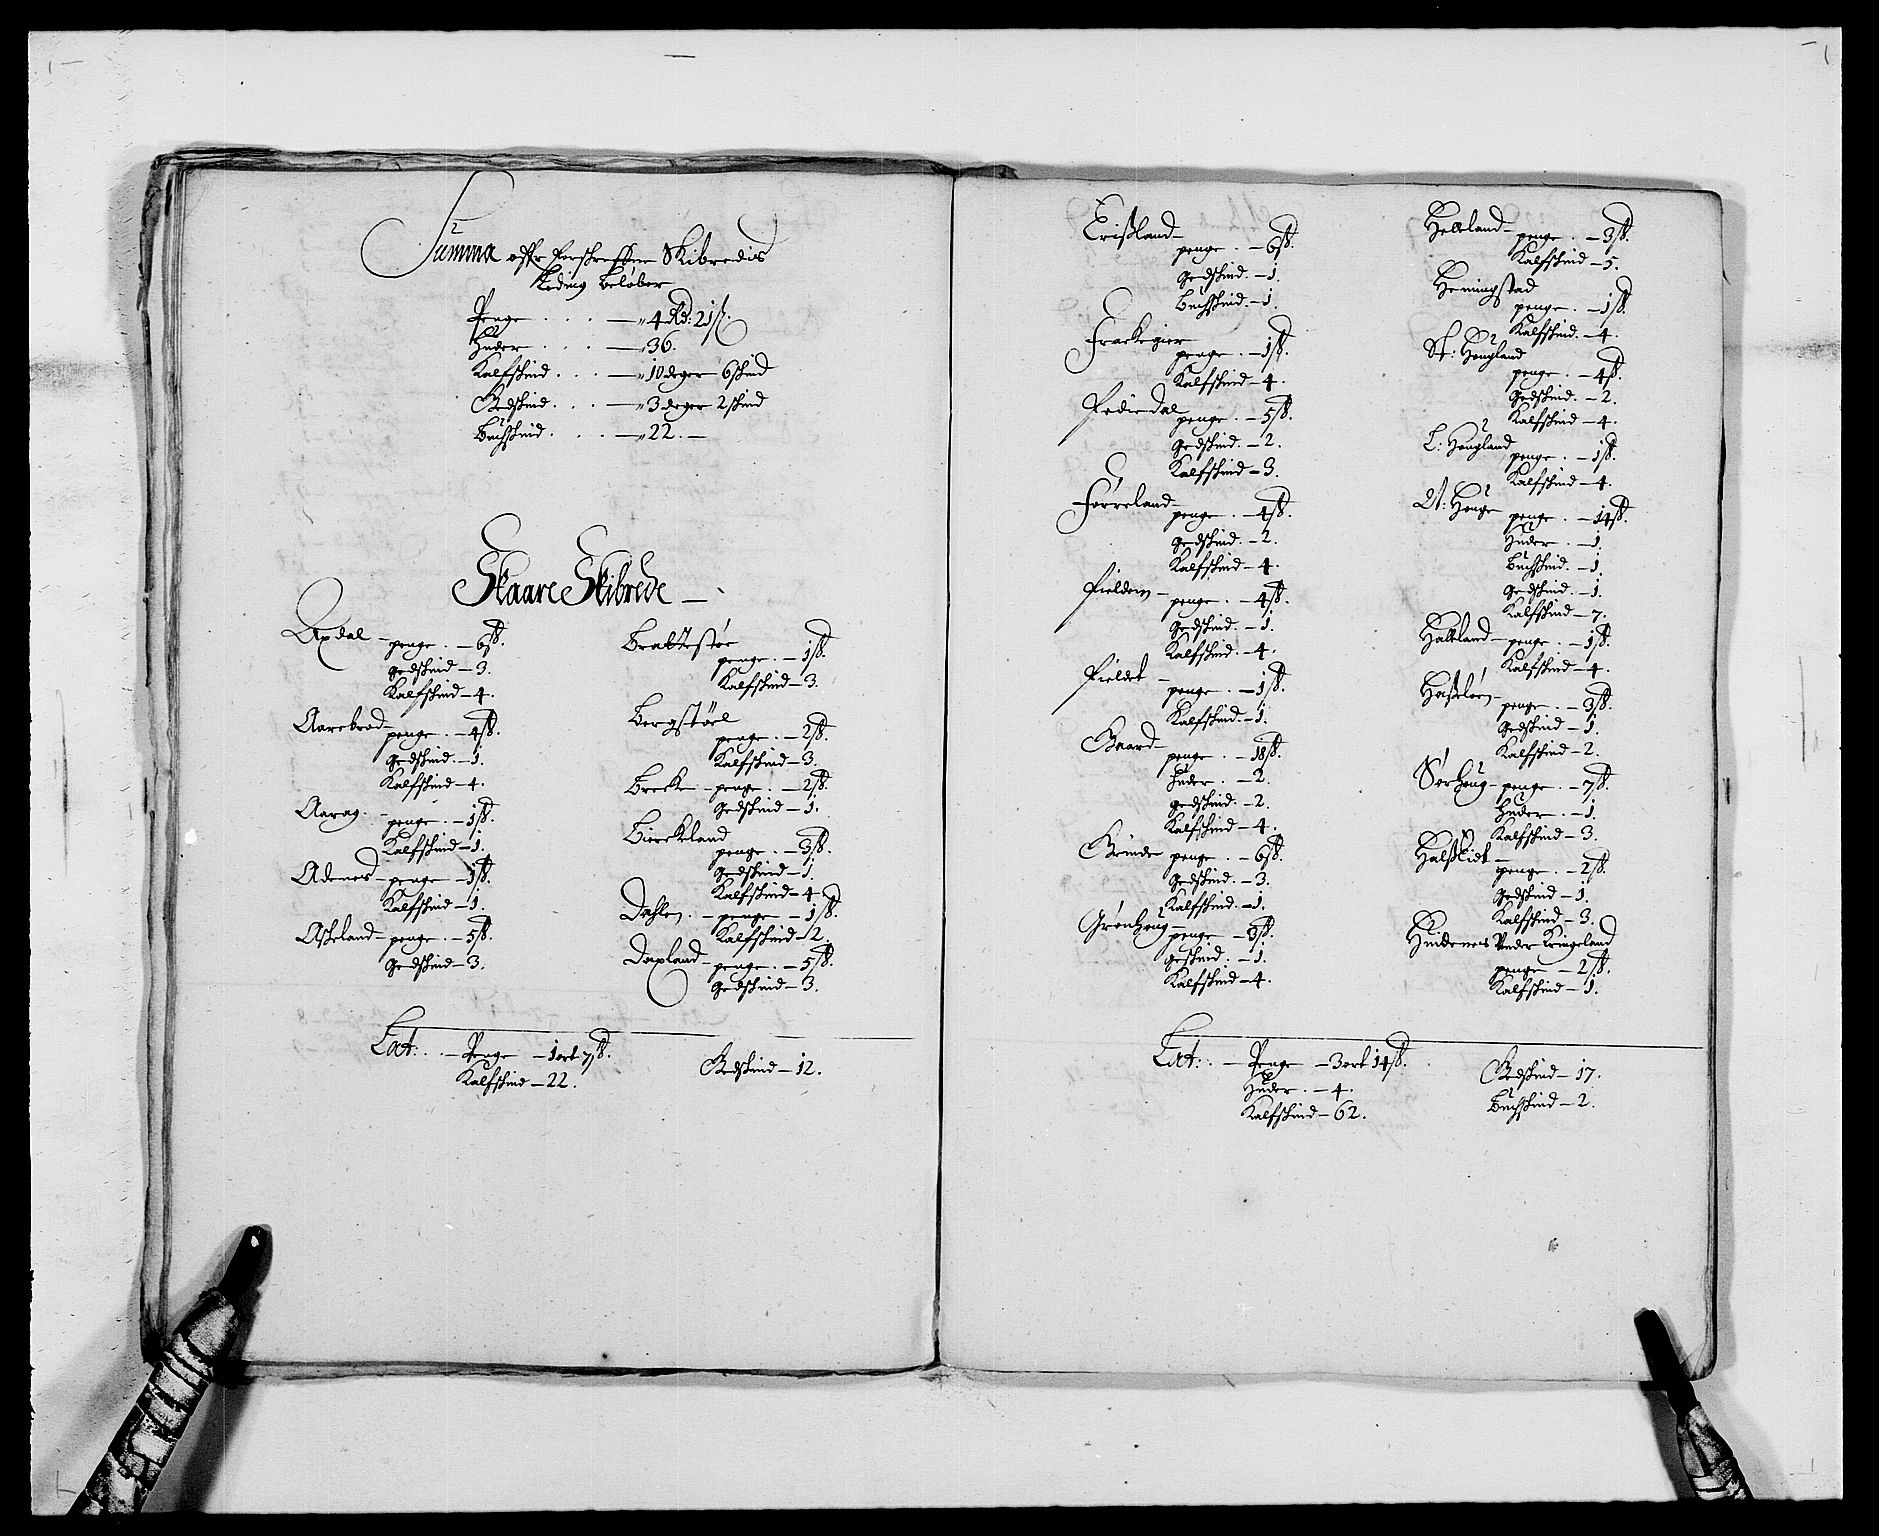 Summa offr Forschreffne Skibredis
Leding beløber
Penge . . . . — 4 Rd: 21 ß.
Huder . . . — 36.
Kalfskind . . . — 10 deger 6 skind
Gedskind . . . — 3 deger 2 skind
Buchskind . . . — 22. —
Skaare Skibrede —
Axdal — penge . — 6 ß.
gedskind — 3.
Kalfskind — 4.
Aarebrod — penge . — 4 ß.
gedskind . — 1.
Kalfskind — 4.
Aarag. — penge . — 1 ß.
Kalfskind — 1.
Adenes — penge — 1 ß.
Kalfskind — 1.
Askeland — penge . — 5 ß.
gedskind — 3.
Brattestøe
penge . — 1 ß.
Kalfskind — 3.
Bergstøel
penge . — 2 ß.
Kalfskind — 3.
Brekke — penge . — 2 ß.
gedskind — 1.
Bierckeland
penge . — 3 ß.
gedskind — 1.
Kalfskind — 4
Dahlen . — penge — 1 ß.
Kalfskind — 2.
Daxland — penge . — 5 ß.
gedskind — 3.
Lat: . . — Penge — 1 ort 7 ß.
Kalfskind — 22.
Gedskind — 12.
Erißland —
penge . — 6 ß.
gedskind . — 1.
Buchskind . — 1.
Frackegier
penge . — 1 ß.
Kalfskind — 4.
Fediedal
penge . — 5 ß.
gedskind . — 2.
Kalfskind — 3.
Førreland —
penge . — 4 ß.
gedskind . — 2.
Kalfskind — 4.
Fielden —
penge . — 4 ß.
gedskind . — 1.
Kalfskind . — 4.
Fieldet —
penge . — 1 ß.
Kalfskind . — 1.
Gaard —
penge . — 18 ß.
Huder . — 2.
gedskind . — 2.
Kalfskind — 4.
Grinde penge . — 6 ß.
gedskind . — 3.
Kalfskind . — 1.
Grønhoug —
penge — 3 ß.
geskind . — 1.
Kalfskind — 4.
Helleland — penge . — 3 ß.
Kalfskind — 5.
Hemingstad
penge . — 1 ß.
Kalfskind . — 4.
St: Hougland
penge . — 4 ß.
gedskind . — 2.
Kalfskind — 4.
L: Hougland
penge . — 1 ß.
Kalfskind — 4.
St: Houge
penge . — 14 ß.
Huder . — 1.
Buchskind . — 1.
gedskind . — 1.
Kalfskind — 7.
Halleland — penge . — 1 ß.
Kalfskind — 4.
Haßeløen —
penge . — 3 ß.
gedskind — 1.
Kalfskind — 2.
Sørhoug — penge . — 7 ß.
Huder . — 1.
Kalfskind — 3.
Halßeidt —
penge . — 2 ß.
gedskind — 1.
Kalfskind — 3.
Huidenes Under Kringeland
penge — 2 ß.
Kalfskind — 1.
Lat: . — Penge — 3 ort 14 ß.
Huder . — 4.
Kalfskind — 62.
Gedskind — 17.
Buchskind — 2.